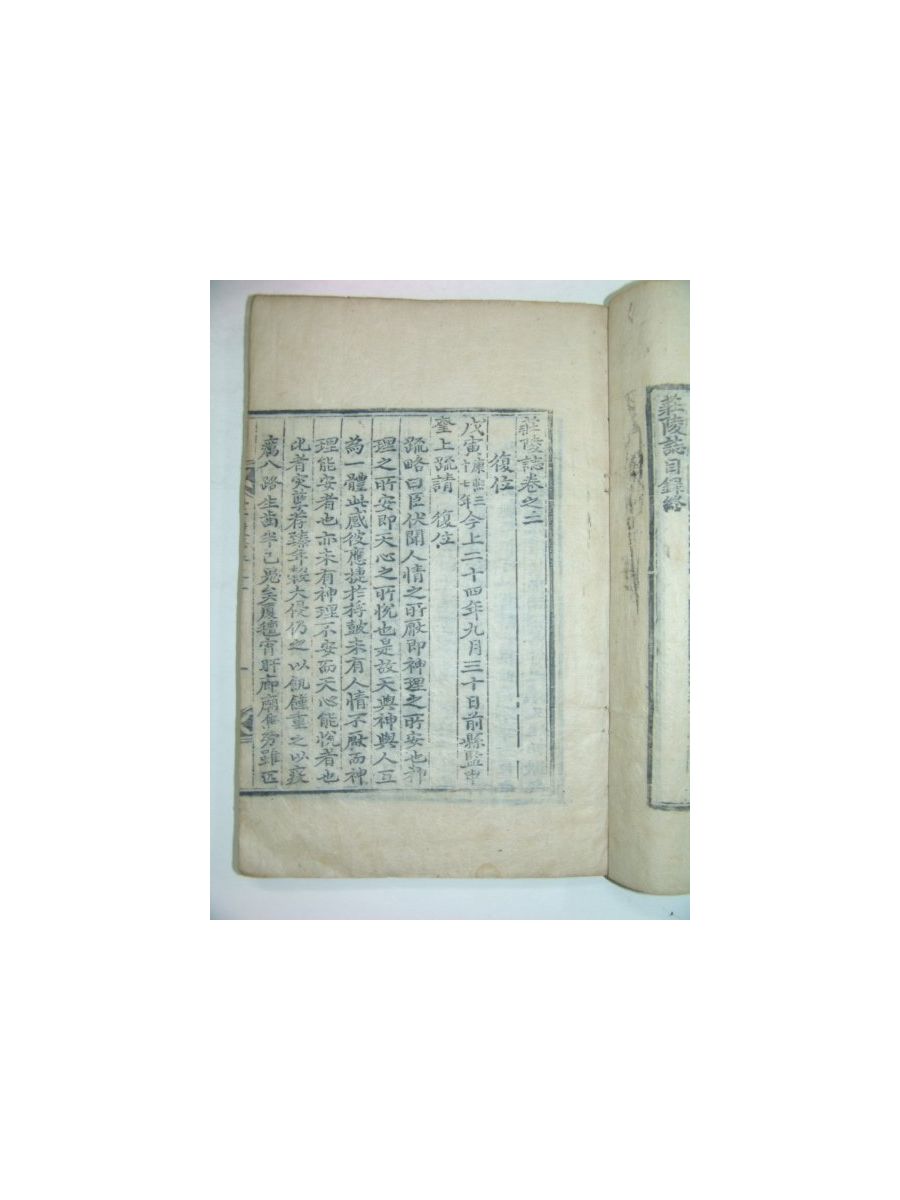 莊陵誌目錄終
莊陵誌卷之二
復位
戊寅康熙三十七年今上二十四年九月三十日前縣監申
奎上疏請 復位
疏略曰臣伏聞人情之所厭即神理之所安也神
理之所安即天心之所悅也是故天與神與人互
為一體此感彼應捷於桴鼓未有人情不厭而神
理能安者也亦未有神理不安而天心能悅者也
比者突孼荐臻年穀大侵仍之以飢饉重之以疫
癘八路生齒半已鬼矣廈氊宵旰廊廟焦勞雖匹